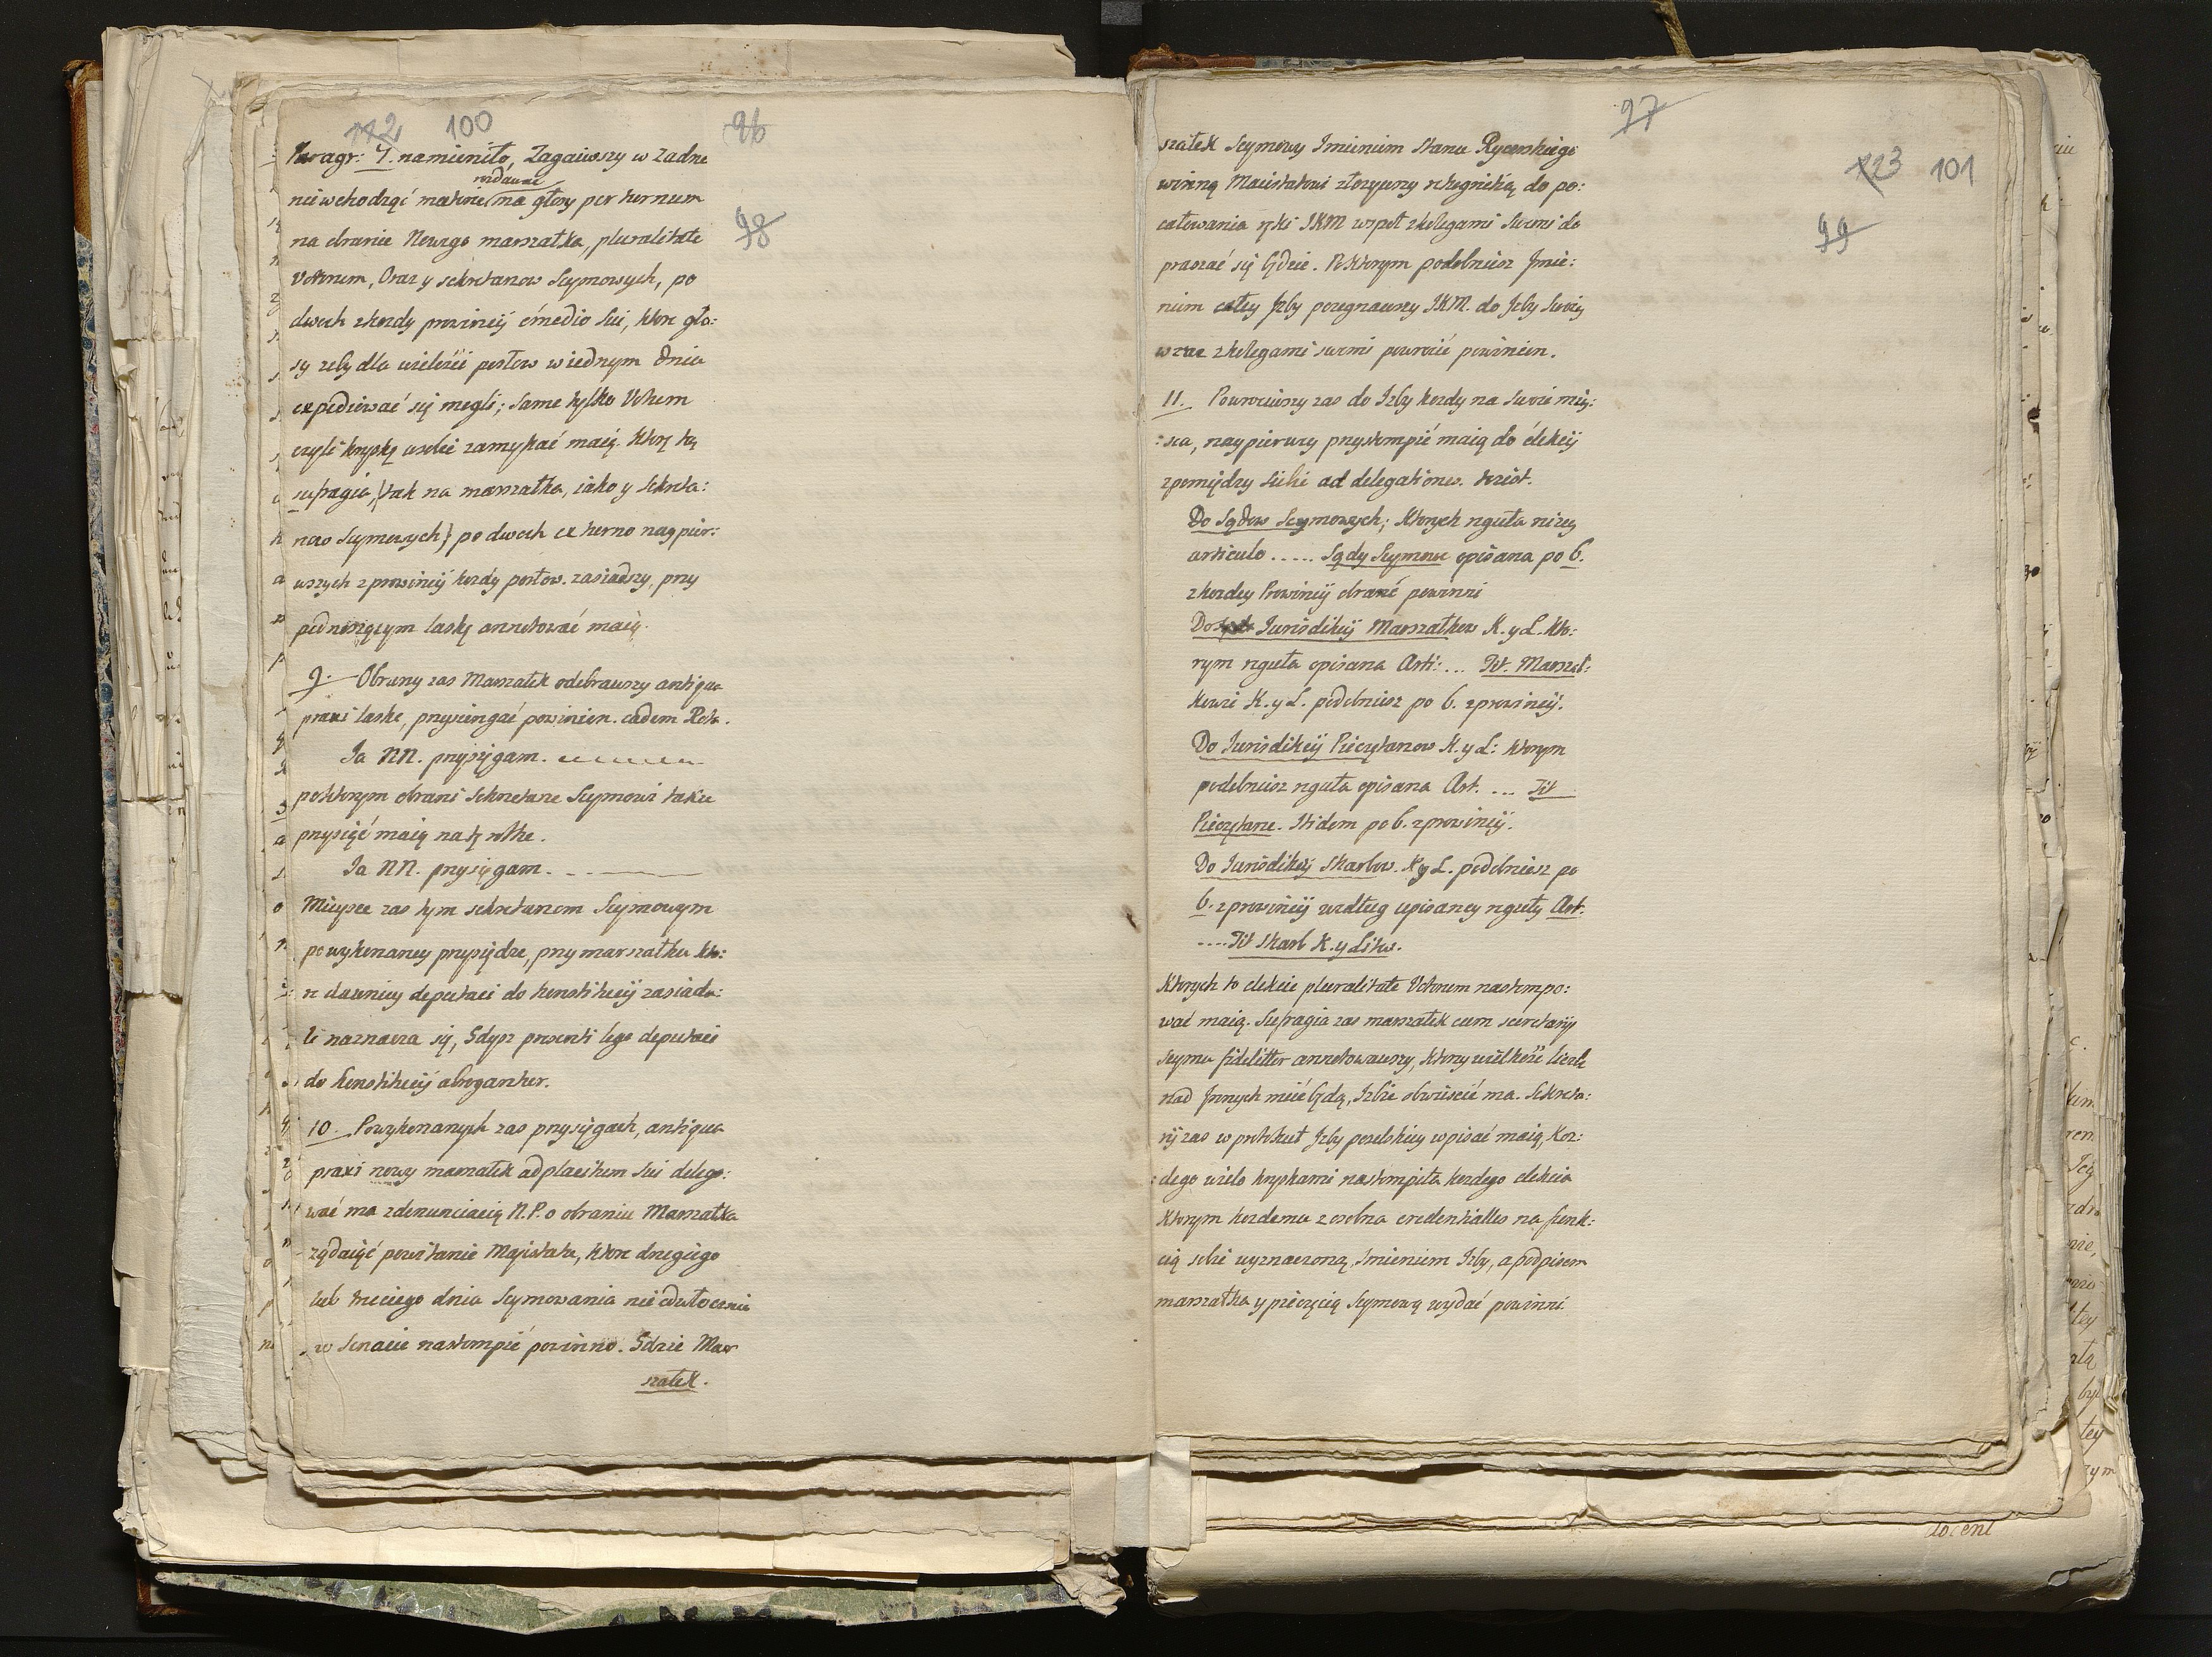 112 100 96
Paragr: 7. namieniło, Zagaiwszy w zadne
rozdawać
nie wchodząć materie, ma głosy per turnum
98
na obranie Nowego marszałka, pluralitate
Votorum, Oraz y sekretarzow Seymowych, po
dwoch z kozdy prowincij é medio sui, ktore gło:
sy zeby dla wielości posłow w iednym dniu
expediowac się mogli; same tylko Votum
czyli kryskę w sobie zamykać maią. Ktorę tę
sufragia, tak na marszałka, iako y sekreta:
rzow Seymowych} po dwoch ex turno naypier:
wszych z prowincij kozdy posłow. zasiadszy, przy
podnoszącym laskę annotować maią.
9. Obrany zas Marszałek odebrawszy antiqua
praxi laske, przysiengać powinien. eadem Rota.
Ia NN. przysięgam.
po ktorym obrani Sekretarze Seymowi takie
przysiąć maią na tę rothe.
Ia NN. przysięgam.
Mieysce zas tym sekretarzom Seymowym
po wykonaney przysiędze, przy marszałku kto:
re dawniey deputaci do konstitucij zasiada:
li naznacza się, Gdysz presenti lege deputaci
do konstitucij abrogantur.
10. Po wykonanych zas przysięgach, antiqua
praxi nowy marszałek ad placitum sui delego:
wać ma z denunciacią N.P. o obraniu Marszałka
ządaiąć powitanie Majistatu, ktore drugiego
lub trzeciego dnia Seymowania nie odwłocznie
w Senacie nastompić powinno. Gdzie Mar
szałek.
97
123 101
99
szałek Seymowy Imieniem Stanu Rycerskiego
winną Maiestatowi złozywszy rekognicią do po:
całowania ręki JKM wspoł z kolegami Swemi do
praszać się będzie. Po ktorym podobniesz Jmie:
niem całey Jzby pozegnawszy JKM. do Jzby Swoiey
wraz z kolegami swemi powrocić powinien.
11. Powrociwszy zas do Jzby kozdy na Swoie miey:
:sca, naypierwszy przystompić maią do élekcij
z pomiędzy siebie ad delegationes. ktoż.
Do Sądow Seymowych; Ktorych reguła nizey
articulo ..... Sądy Seymowe opisana po 6.
z kozdey Prowincij obrani powinni
Do Iurisdikcij Marszałkow K. y L. Kto:
rym reguła opisana Arti: ... Tit. Marszał:
kowie K. y L. podobniesz po 6. z prowincij.
Do Iurisdikcij Pieczętarzow K. y L: Ktorym
podobniesz reguła opisana Art. ... Tit
Pieczętarze. Itidem po 6. z prowincij.
Do Iurisdikcij Skarbow. K y L. podobniesz po
6. z prowincij według opisaney reguły Art.
.... Tit Skarb K. y Litew.
Ktorych to elekcie pluralitate Votorum nastempo:
wać maią. Sufragia zas marszałek cum secretarijs
seymu fideliter annotowawszy, ktory wielkość liczbę
nad Jnnych mieć będą, Izbie obwieścić ma. Sekreta:
rij zas w protokuł Jzby poselskiey wpisać maią, Koz:
:dego wielo kryskami nastompiła kozdego elekcia
Ktorym kozdemu z osobna credentialles na funk:
cią sobie wyznaczoną, Imieniem Izby, a podpisem
marszałka y pieczęcią Seymową wydać powinni.